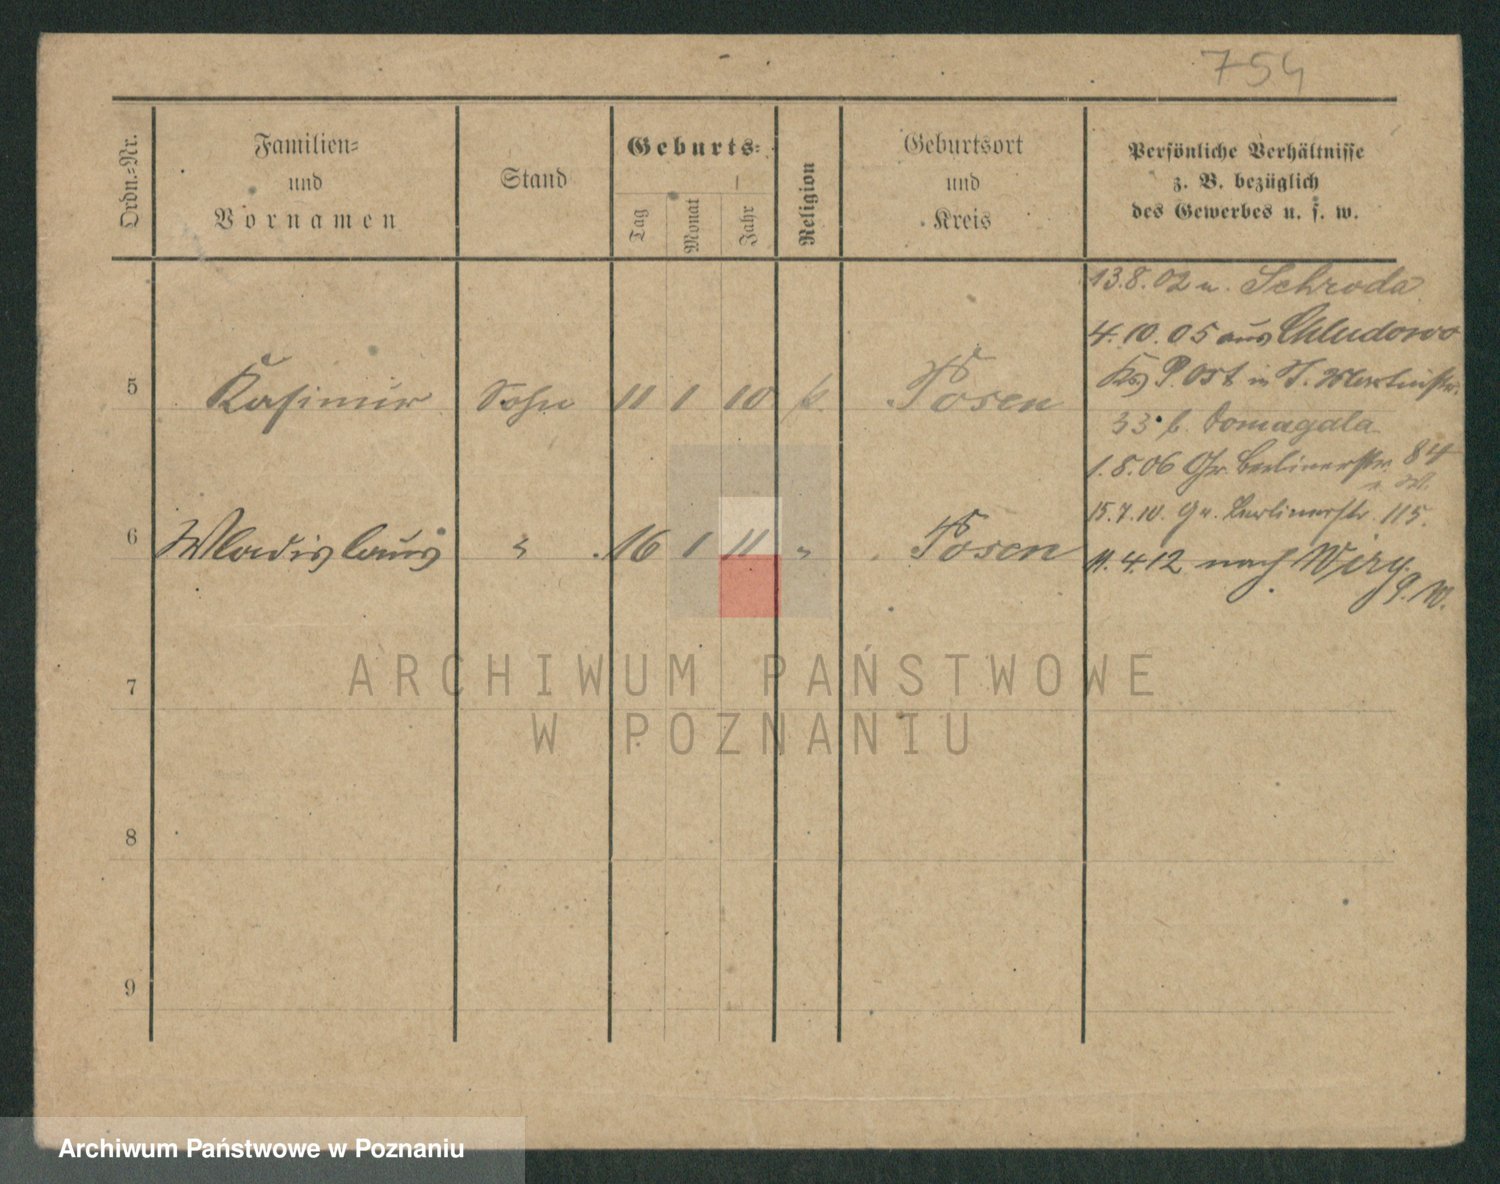 754
Ordn.-Nr.
Familien-
und
Vornamen
Stand
Geburts-
Tag
Monat
Jahr
Religion
Geburtsort
und
Kreis
Persönliche Verhältnisse
z. B. bezüglich
des Gewerbes u. s. w.
13.8.02 n. Schroda
4.10.05 aus Chludowo
P. Ost in
5 Kasimir Sohn 11 1 10 k. Posen
33 b. Domagala
1.8.06 Gr. Berlinerstr. 84
15.7.10. Gr. Berlinerstr. 115.
6 Wladislaus " 16 1 11 " Posen
11.4.12 nach Wiry.
G. W.
7
8
9
ARCHIWUM PAŃSTWOWE
W POZNANIU
Archiwum Państwowe w Poznaniu